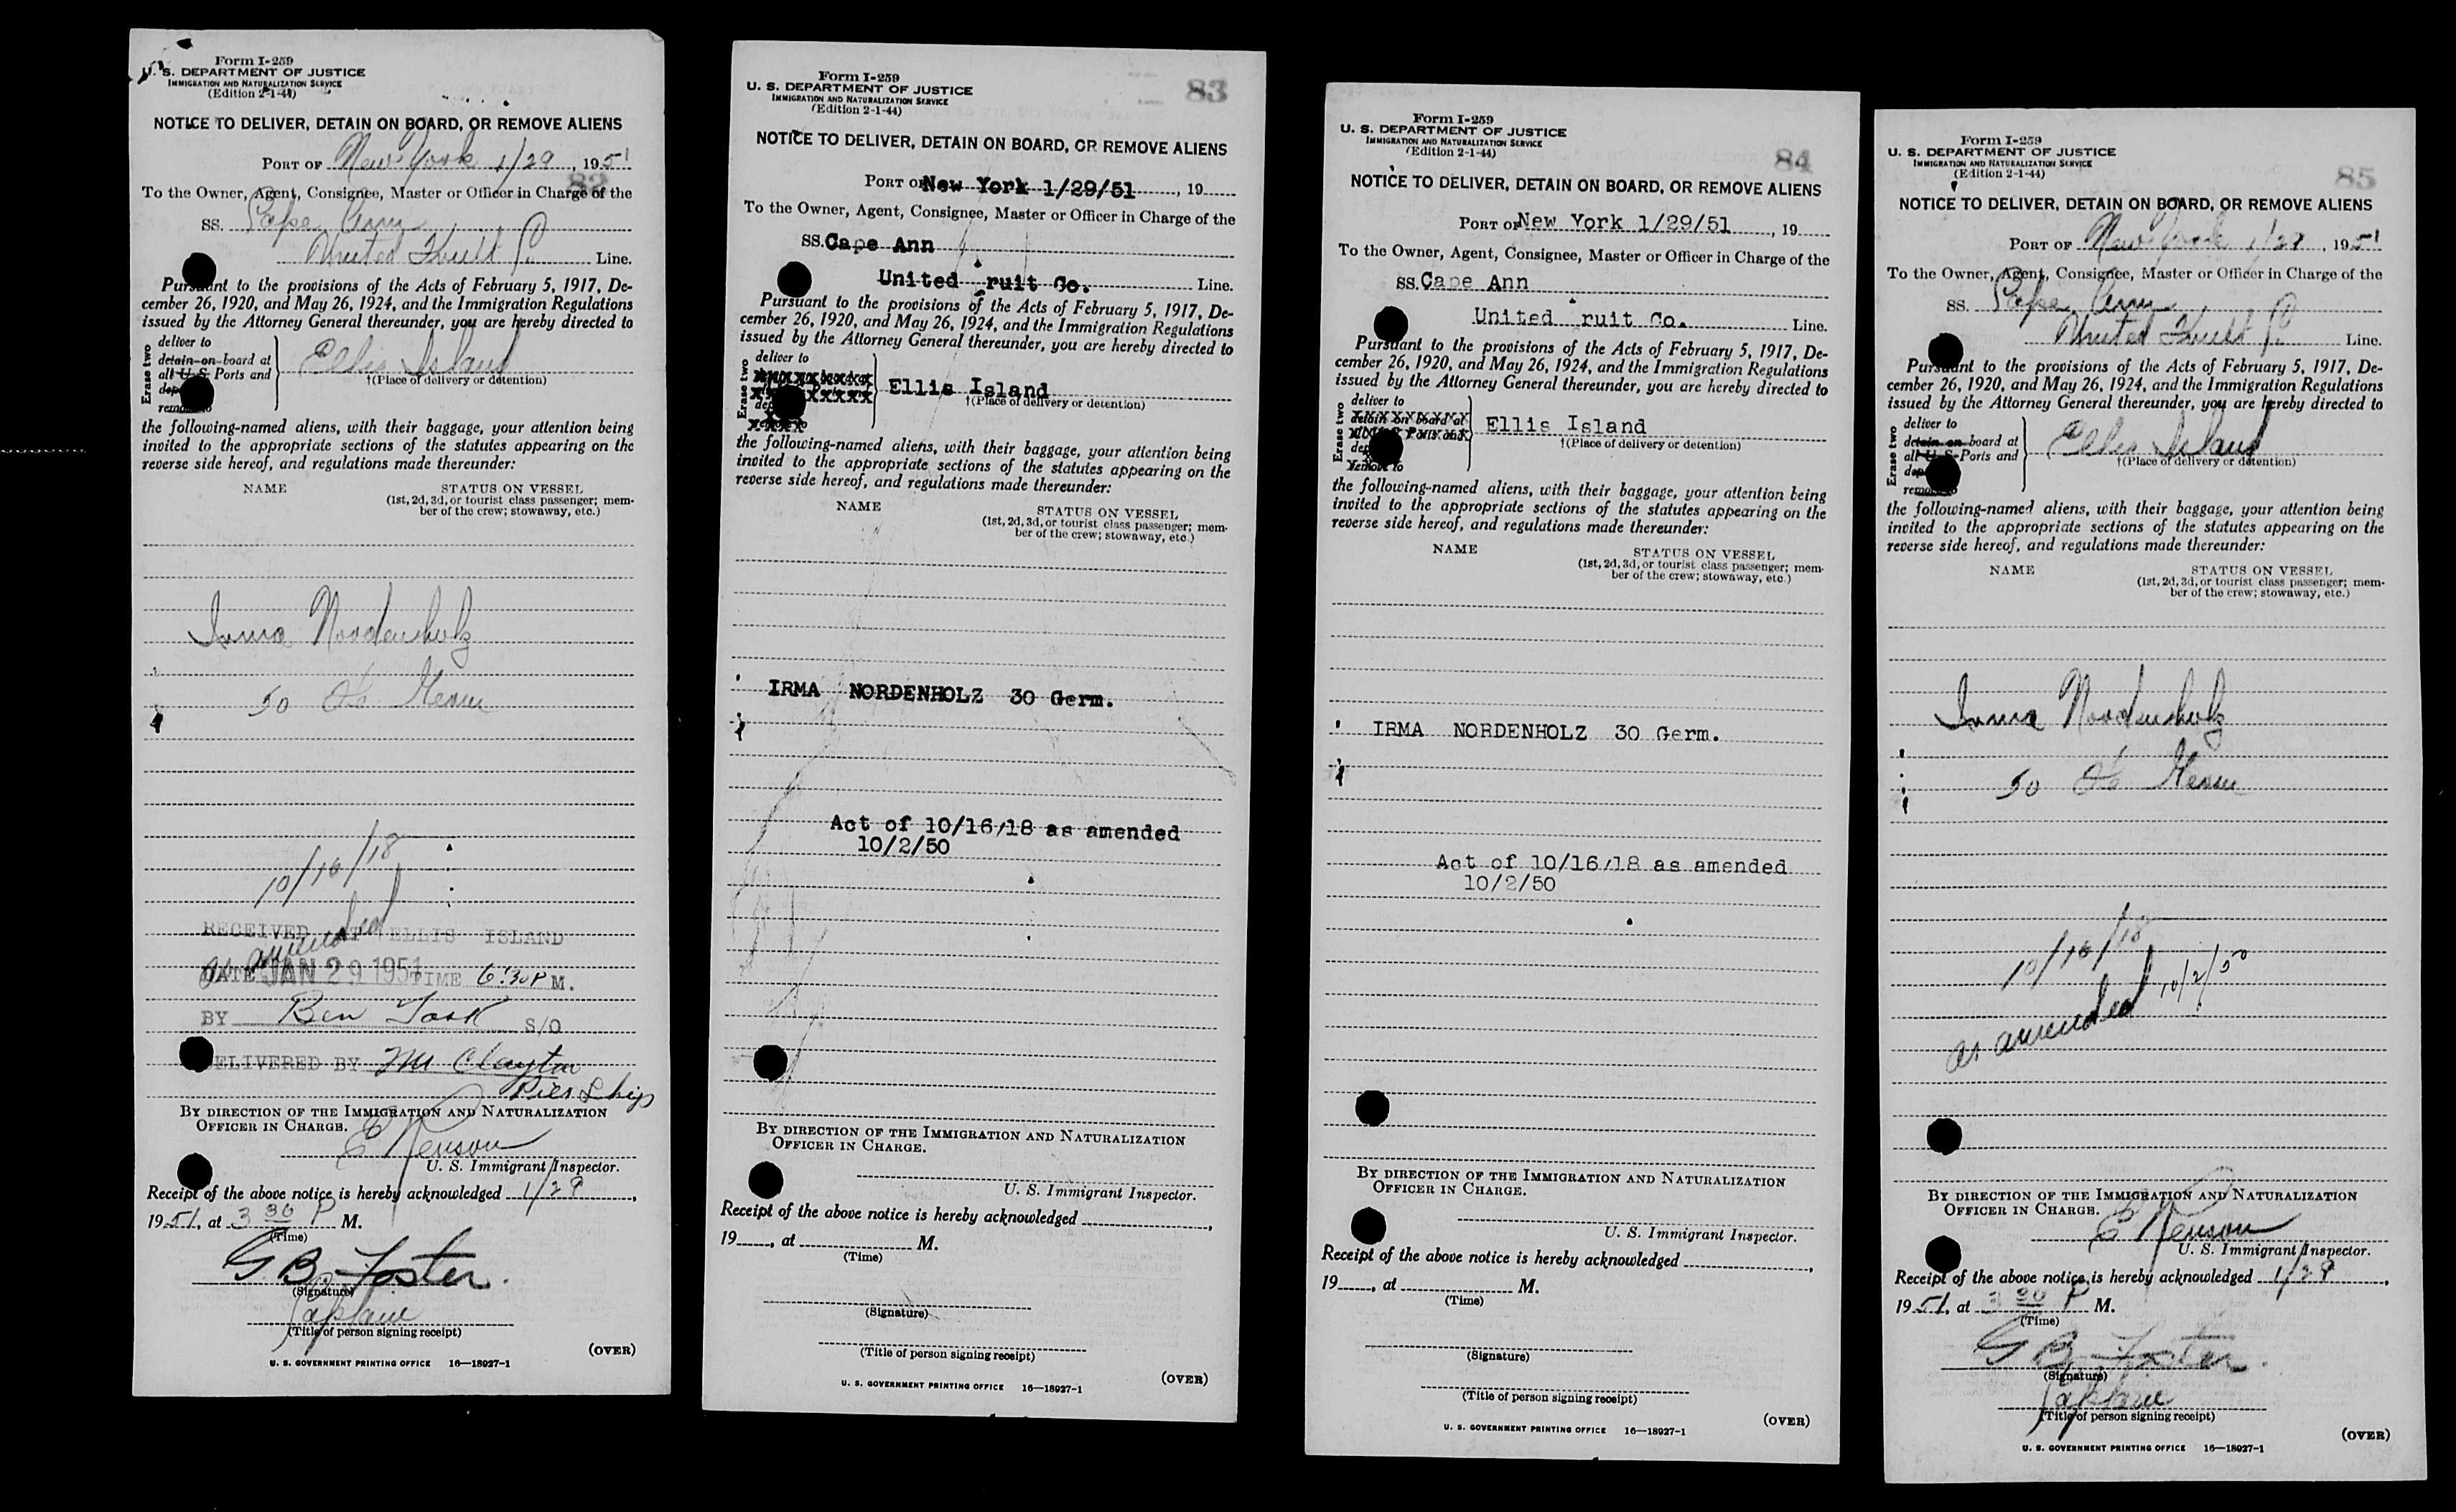 Form I-259
U. S. DEPARTMENT OF JUSTICE
IMMIGRATION AND NATURALIZATION SERVICE
(Edition 2-1-44)
NOTICE TO DELIVER, DETAIN ON BOARD, OR REMOVE ALIENS
PORT OF New York 1/29, 1951
82
To the Owner, Agent, Consignee, Master or Officer in Charge of the
SS. Cape Ann
United Fruit Co. Line.
Pursuant to the provisions of the Acts of February 5, 1917, De-
cember 26, 1920, and May 26, 1924, and the Immigration Regulations
issued by the Attorney General thereunder, you are hereby directed to
Erase two
deliver to
detain on board at
all U. S. Ports and
dep
remove to
Ellis Island
†(Place of delivery or detention)
the following-named aliens, with their baggage, your attention being
invited to the appropriate sections of the statutes appearing on the
reverse side hereof, and regulations made thereunder:
NAME STATUS ON VESSEL
(1st, 2d, 3d, or tourist class passenger; mem-
ber of the crew; stowaway, etc.)
Irma Nordenholz
30 Germ
10/16/18
as amended
RECEIVED AT ELLIS ISLAND
DATE JAN 29 1951 TIME 6:30 P M.
BY Ben S/O
DELIVERED BY M Clayton
Pier & Ships
BY DIRECTION OF THE IMMIGRATION AND NATURALIZATION
OFFICER IN CHARGE.
E
U. S. Immigrant Inspector.
Receipt of the above notice is hereby acknowledged 1/29,
1951, at 3 30 P M.
(Time)
G B Foster
(Signature)
Captain
(Title of person signing receipt)
(OVER)
U. S. GOVERNMENT PRINTING OFFICE 16—18927-1
Form I-259
83
U. S. DEPARTMENT OF JUSTICE
IMMIGRATION AND NATURALIZATION SERVICE
(Edition 2-1-44)
NOTICE TO DELIVER, DETAIN ON BOARD, OR REMOVE ALIENS
PORT OF New York 1/29/51, 19
To the Owner, Agent, Consignee, Master or Officer in Charge of the
SS. Cape Ann
United ruit Co. Line.
Pursuant to the provisions of the Acts of February 5, 1917, De-
cember 26, 1920, and May 26, 1924, and the Immigration Regulations
issued by the Attorney General thereunder, you are hereby directed to
Erase two
deliver to
Ellis Island
†(Place of delivery or detention)
the following-named aliens, with their baggage, your attention being
invited to the appropriate sections of the statutes appearing on the
reverse side hereof, and regulations made thereunder:
NAME STATUS ON VESSEL
(1st, 2d, 3d, or tourist class passenger; mem-
ber of the crew; stowaway, etc.)
IRMA NORDENHOLZ 30 Germ.
Act of 10/16/18 as amended
10/2/50
BY DIRECTION OF THE IMMIGRATION AND NATURALIZATION
OFFICER IN CHARGE.
U. S. Immigrant Inspector.
Receipt of the above notice is hereby acknowledged,
19, at M.
(Time)
(Signature)
(Title of person signing receipt)
(OVER)
U. S. GOVERNMENT PRINTING OFFICE 16—18927-1
Form I-259
U. S. DEPARTMENT OF JUSTICE
IMMIGRATION AND NATURALIZATION SERVICE
(Edition 2-1-44)
84
NOTICE TO DELIVER, DETAIN ON BOARD, OR REMOVE ALIENS
PORT OF New York 1/29/51, 19
To the Owner, Agent, Consignee, Master or Officer in Charge of the
SS. Cape Ann
United ruit Co. Line.
Pursuant to the provisions of the Acts of February 5, 1917, De-
cember 26, 1920, and May 26, 1924, and the Immigration Regulations
issued by the Attorney General thereunder, you are hereby directed to
Erase two
deliver to
detain on board at
all U. S. Ports and
dep
remove to
Ellis Island
†(Place of delivery or detention)
the following-named aliens, with their baggage, your attention being
invited to the appropriate sections of the statutes appearing on the
reverse side hereof, and regulations made thereunder:
NAME STATUS ON VESSEL
(1st, 2d, 3d, or tourist class passenger; mem-
ber of the crew; stowaway, etc.)
IRMA NORDENHOLZ 30 Germ.
Act of 10/16/18 as amended
10/2/50
BY DIRECTION OF THE IMMIGRATION AND NATURALIZATION
OFFICER IN CHARGE.
U. S. Immigrant Inspector.
Receipt of the above notice is hereby acknowledged,
19, at M.
(Time)
(Signature)
(Title of person signing receipt)
(OVER)
U. S. GOVERNMENT PRINTING OFFICE 16—18927-1
Form I-259
U. S. DEPARTMENT OF JUSTICE
IMMIGRATION AND NATURALIZATION SERVICE
(Edition 2-1-44)
85
NOTICE TO DELIVER, DETAIN ON BOARD, OR REMOVE ALIENS
PORT OF New York 1/29, 1951
To the Owner, Agent, Consignee, Master or Officer in Charge of the
SS. Cape Ann
United Fruit Co. Line.
Pursuant to the provisions of the Acts of February 5, 1917, De-
cember 26, 1920, and May 26, 1924, and the Immigration Regulations
issued by the Attorney General thereunder, you are hereby directed to
Erase two
deliver to
detain on board at
all U. S. Ports and
dep
remove to
Ellis Island
†(Place of delivery or detention)
the following-named aliens, with their baggage, your attention being
invited to the appropriate sections of the statutes appearing on the
reverse side hereof, and regulations made thereunder:
NAME STATUS ON VESSEL
(1st, 2d, 3d, or tourist class passenger; mem-
ber of the crew; stowaway, etc.)
Irma Nordenholz
30 Germ
10/16/18
as amended 10/2/50
BY DIRECTION OF THE IMMIGRATION AND NATURALIZATION
OFFICER IN CHARGE.
E
U. S. Immigrant Inspector.
Receipt of the above notice is hereby acknowledged 1/29,
1951, at 3 30 P M.
(Time)
G B Foster
(Signature)
Captain
(Title of person signing receipt)
(OVER)
U. S. GOVERNMENT PRINTING OFFICE 16—18927-1